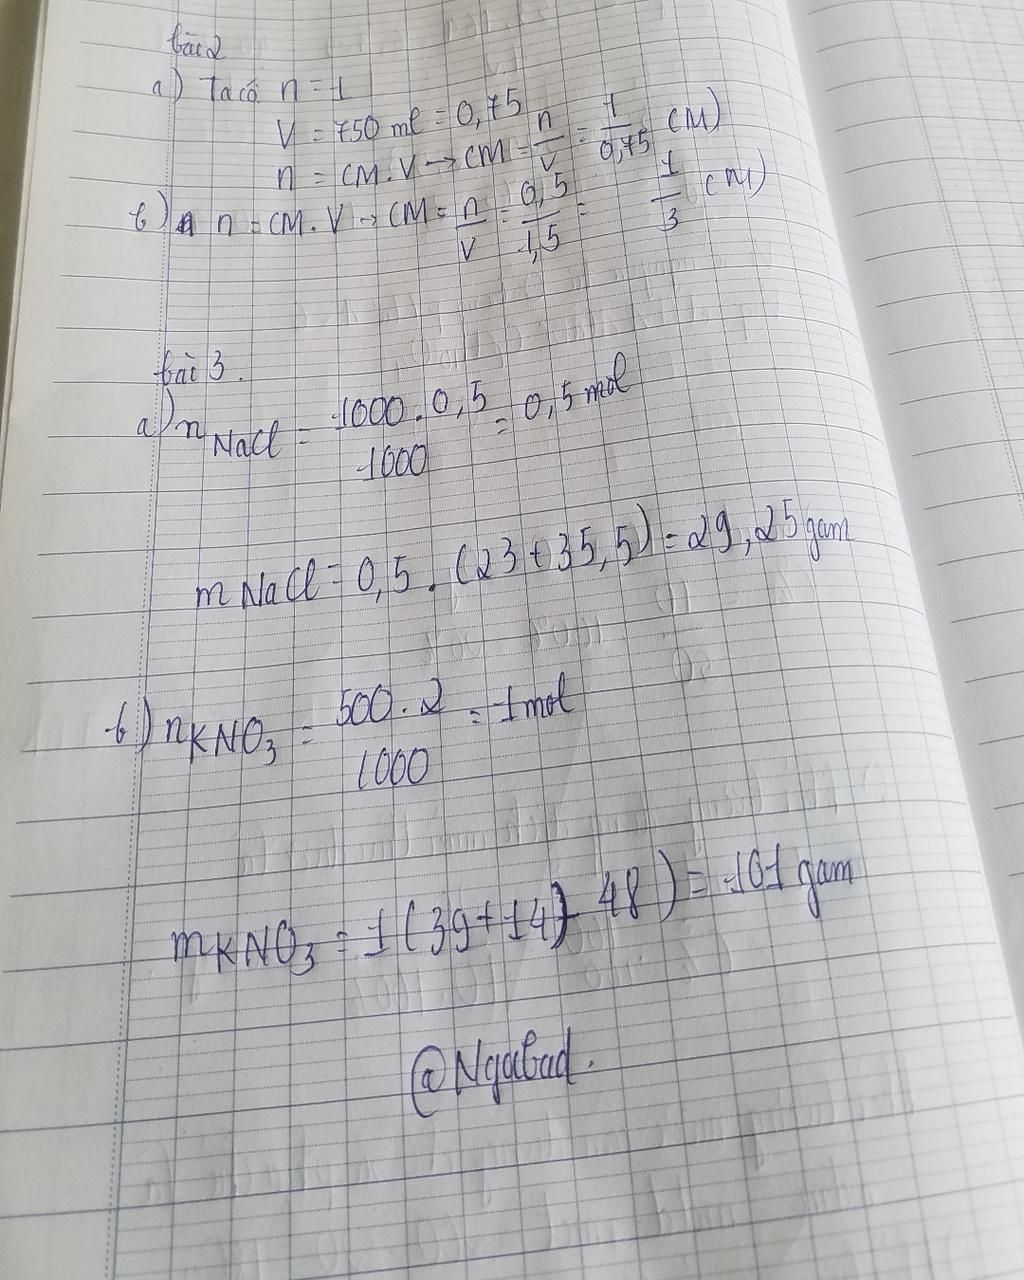 bài 2
a) Ta có n = 1
V = 750 ml = 0,75
n = CM.V → CM = n/V = 1/0,75 (M)
b) n = CM.V → CM = n/V = 0,5/1,5 = 1/3 (M)
bài 3.
a) nNaCl = 1000.0,5/1000 = 0,5 mol
mNaCl = 0,5.(23+35,5) = 29,25 gam
b) nKNO3 = 500.2/1000 = 1 mol
mKNO3 = 1(39+14+48) = 101 gam
@Ngabad.